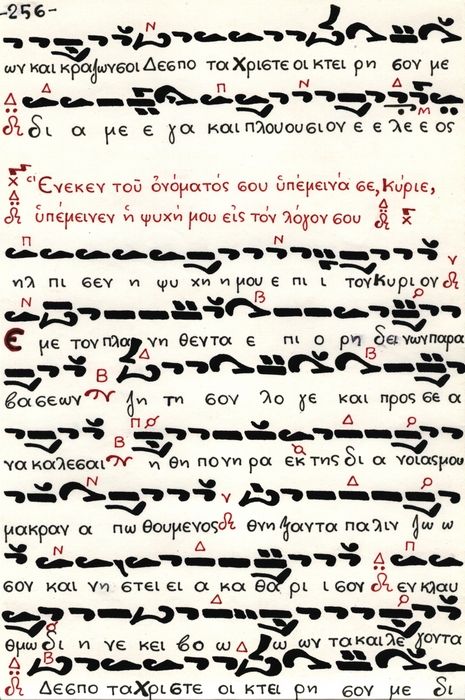 -256-
ων και κραζων σοι Δεσπο τα Χριστε οι κτει ρη σον με
δι α με ε γα και πλουσιον ε ε λε ε ος
Ἕνεκεν τοῦ ὀνόματός σου ὑπέμεινά σε, Κύριε,
ὑπέμεινεν ἡ ψυχή μου εἰς τόν λόγον σου
ηλ πι σεν η ψυ χη η μου ε πι ι τον Κυρι ον
Ε με τον πλα νη θεντα ε πι ο ρη δει νων παρα
βα σεων ζη τη σον λο γε και προς σε α
να καλεσαι η θη πονη ρα εκ της δι α νοιας μου
μακραν α πω θουμενος θνη ξαντα παλιν ζω ω
σον και νη στει ει α κα θα ρι ι σον εν κλαυ
θμω δι η νε κει βο ω ω ων τα και λε γοντα
Δεσπο τα Χρι στε οι κτει ρη σον με δι